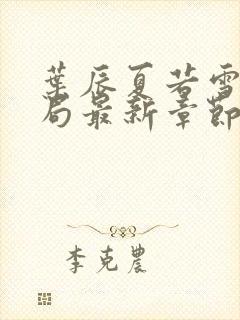 葉辰夏若雪
局最新章節
李克農